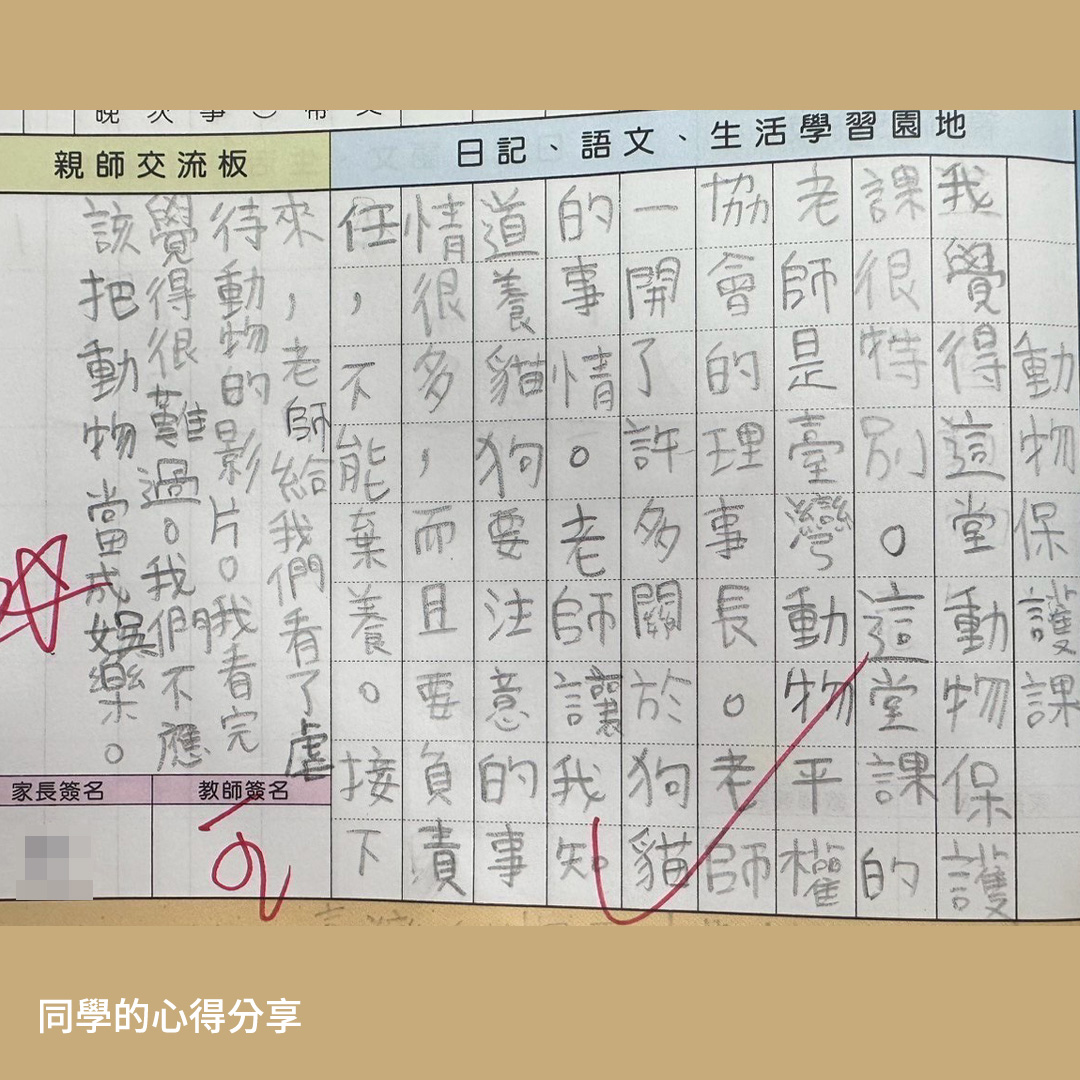 日記、語文、生活學習園地
動物保護課
我覺得這堂動物保護
課很特別。這堂課的
老師是臺灣動物平權
協會的理事長。老師
一開了許多關於狗貓
的事情。老師讓我知
道養貓狗要注意的事
情很多,而且要負責
任,不能棄養。接下
親師交流板
來,老師給我們看了虐
待動物的影片。我看完
覺得很難過。我們不應
該把動物當成娛樂。
教師簽名
家長簽名
同學的心得分享